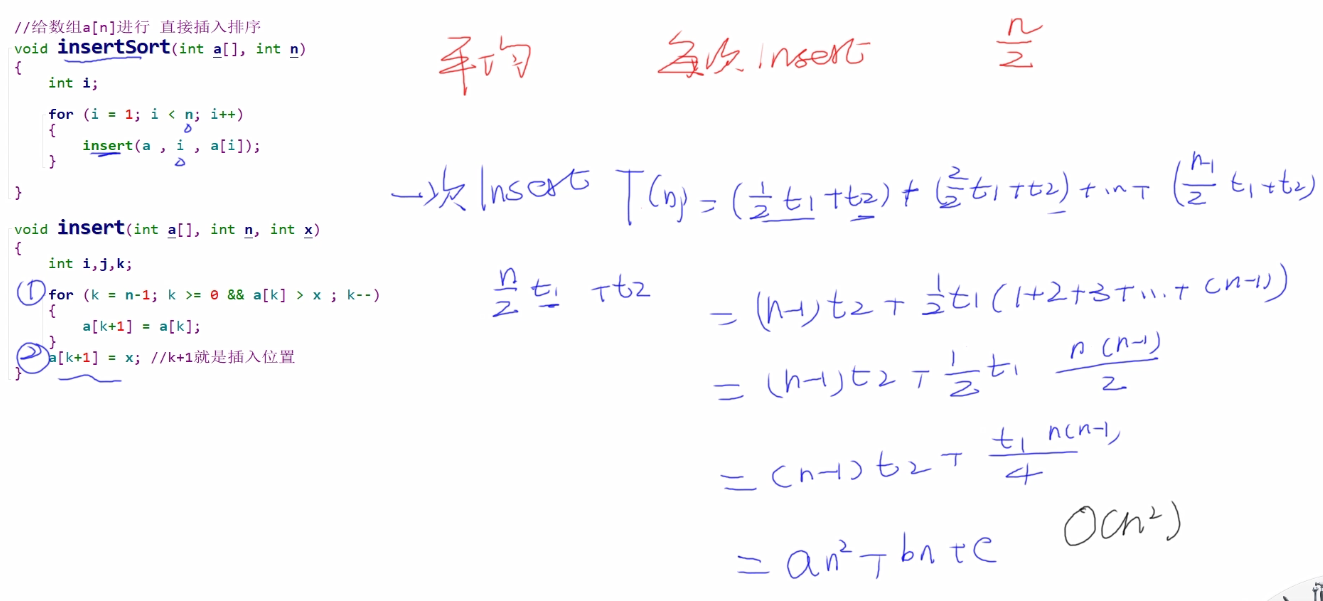 //给数组a[n]进行 直接插入排序
void insertSort(int a[], int n)
{
int i;
for (i = 1; i < n; i++)
{
insert(a , i , a[i]);
}
}
void insert(int a[], int n, int x)
{
int i,j,k;
① for (k = n-1; k >= 0 && a[k] > x ; k--)
{
a[k+1] = a[k];
}
② a[k+1] = x; //k+1就是插入位置
}
平均 每次 Insert n/2
一次 Insert T(n) = (1/2 t1 + t2) + (2/2 t1 + t2) + ... + (n-1/2 t1 + t2)
n/2 t1 + t2
= (n-1) t2 + 1/2 t1 (1+2+3+...+(n-1))
= (n-1) t2 + 1/2 t1 n(n-1)/2
= (n-1) t2 + t1 n(n-1)/4
= an² + bn + c O(n²)